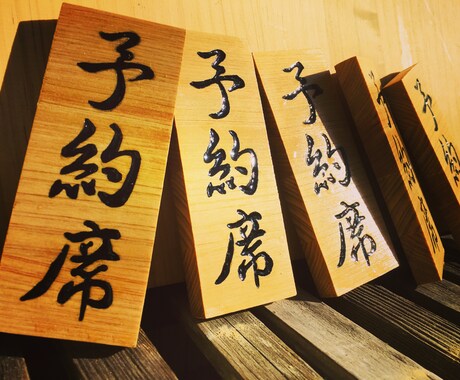 予約席
予約席
予約席
予約席
予約席